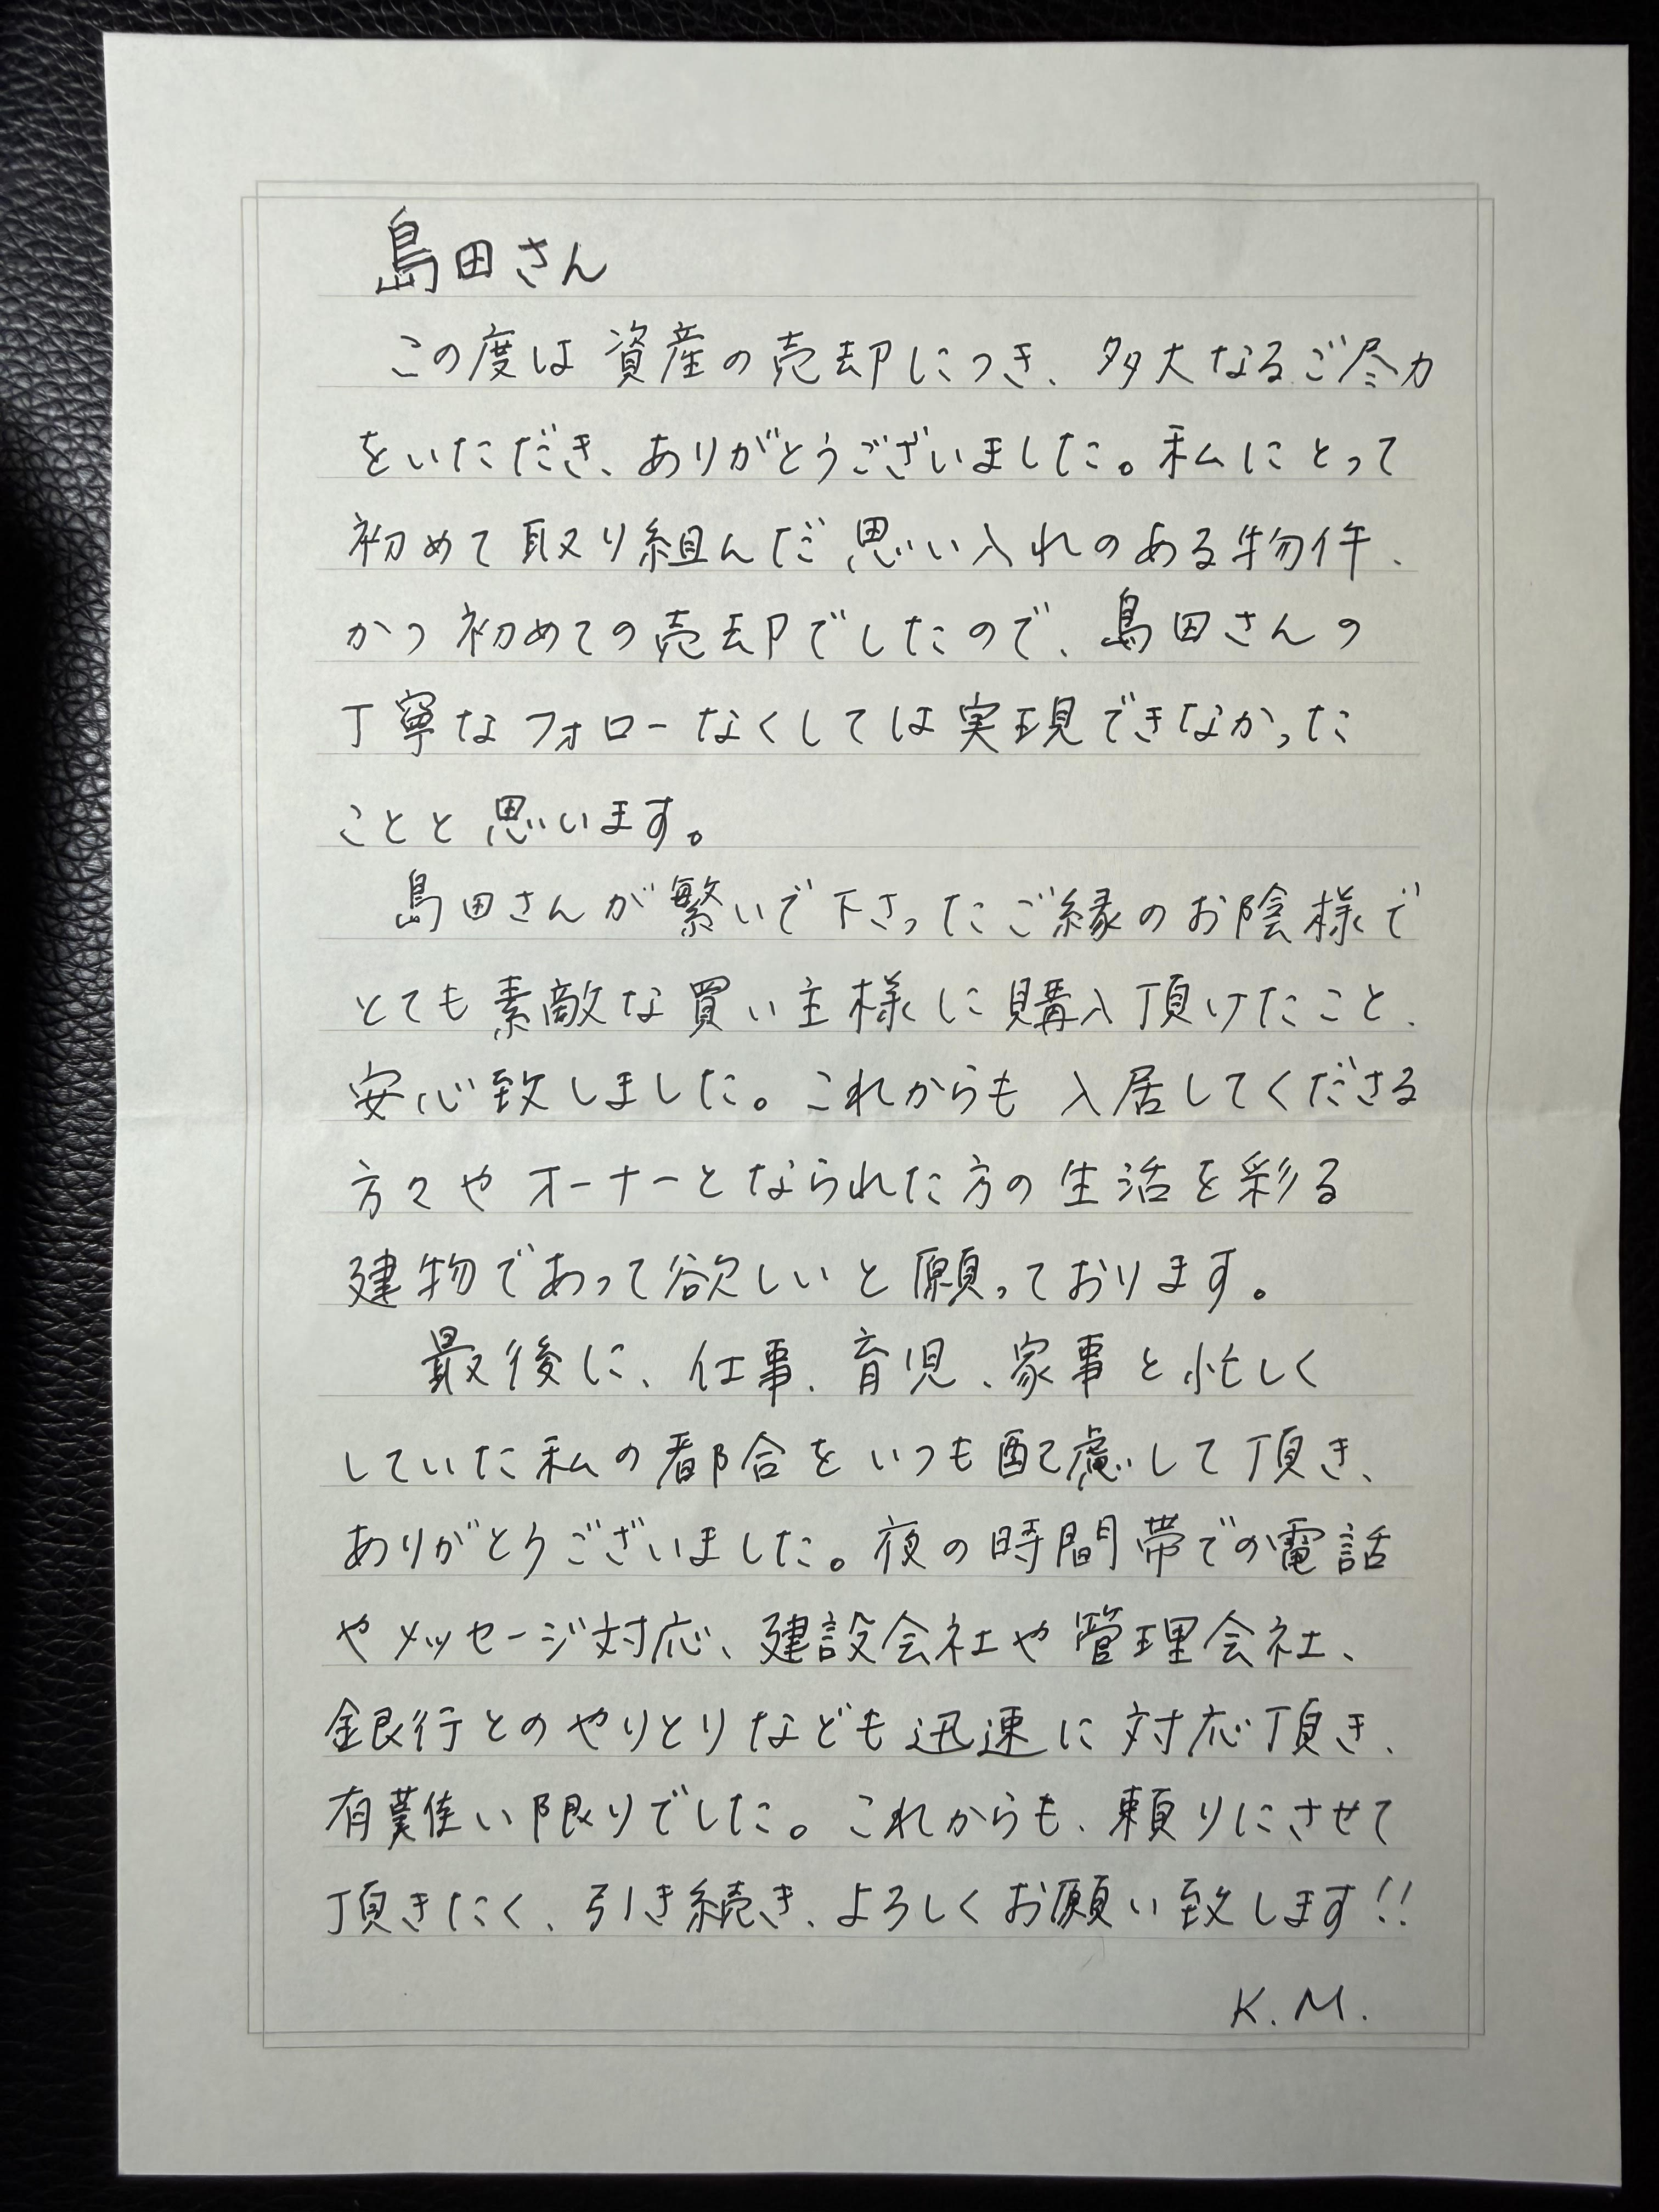 島田さん
この度は資産の売却につき、多大なるご尽力
をいただき、ありがとうございました。私にとって
初めて取り組んだ思い入れのある物件、
かつ初めての売却でしたので、島田さんの
丁寧なフォローなくしては実現できなかった
ことと思います。
島田さんが繋いで下さったご縁のお陰様で
とても素敵な買い主様に購入頂けたこと、
安心致しました。これからも入居してくださる
方々やオーナーとなられた方の生活を彩る
建物であって欲しいと願っております。
最後に、仕事、育児、家事と忙しく
していた私の都合をいつも配慮して頂き、
ありがとうございました。夜の時間帯での電話
やメッセージ対応、建設会社や管理会社、
銀行とのやりとりなども迅速に対応頂き、
有難い限りでした。これからも、頼りにさせて
頂きたく、引き続き、よろしくお願い致します!!
K.M.